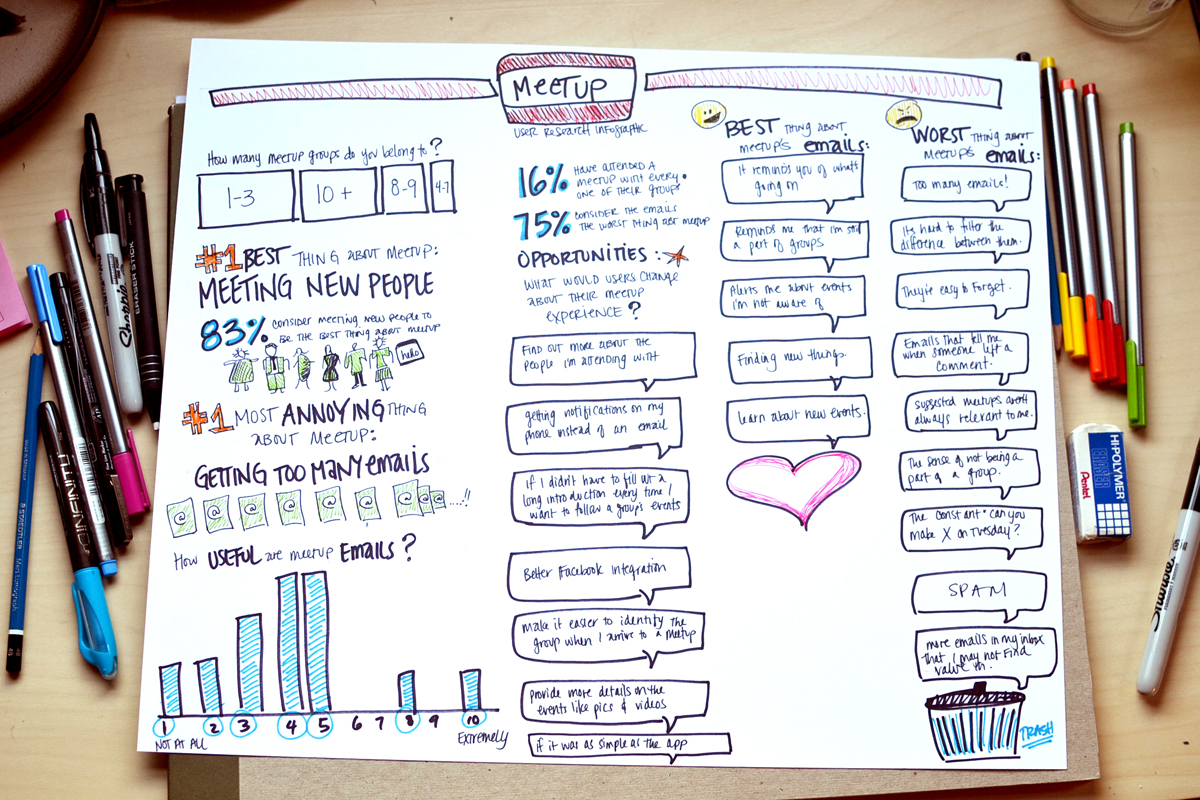 MEETUP
USER RESEARCH INFOGRAPHIC
How many meetup groups do you belong to?
1-3
10+
8-9
4-7
#1 BEST THING ABOUT MEETUP:
MEETING NEW PEOPLE
83% CONSIDER MEETING NEW PEOPLE TO
BE THE BEST THING ABOUT MEETUP
hello
#1 MOST ANNOYING THING
ABOUT MEETUP:
GETTING TOO MANY emails
@ @ @ @ @ @ @ @ @ .....!!
How USEFUL are meetup Emails?
1 2 3 4 5 6 7 8 9 10
NOT AT ALL
Extremely
16% HAVE ATTENDED A
MEETUP WITH EVERY
ONE OF THEIR GROUPS
75% CONSIDER THE EMAILS
THE WORST THING ABT MEETUP
OPPORTUNITIES:
WHAT WOULD USERS CHANGE
ABOUT THEIR MEETUP
EXPERIENCE?
FIND OUT MORE ABOUT THE
PEOPLE I'M ATTENDING WITH
getting notifications on my
phone instead of an email
if I didn't have to fill out a
long introduction every time I
want to follow a group's events
Better Facebook integration
make it easier to identify the
group when I arrive to a meetup
provide more details on the
events like pics & videos
if it was as simple as the app
BEST THING ABOUT
MEETUP'S emails:
It reminds you of what's
going on
Reminds me that I'm still
a part of groups
Alerts me about events
I'm not aware of
Finding new things.
learn about new events.
WORST THING ABOUT
MEETUP'S emails:
Too many emails!
Its hard to filter the
difference between them.
They're easy to forget.
Emails that tell me
when someone left a
comment.
suggested meetups aren't
always relevant to me.
The sense of not being a
part of a group.
The constant "can you
make X on Tuesday"?
SPAM
more emails in my inbox
that I may not find
value in.
TRASH
Sharpie
ERASER STICK
STAEDTLER
Mars Lumograph
4B
HI-POLYMER
Pentel
Sharpie